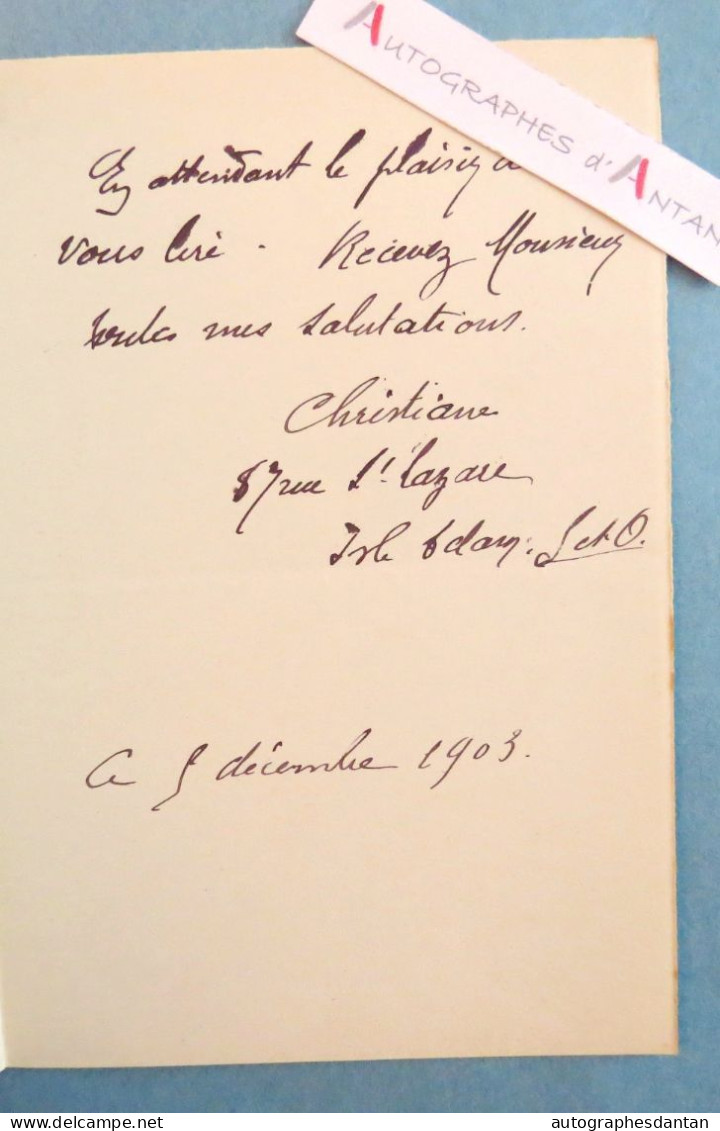 AUTOGRAPHES d'ANTAN
En attendant le plaisir d
vous lire. Recevez Monsieur
toutes mes salutations.
Christiane
87 rue St. Lazare
Isle Adam. S et O.
Ce 5 décembre 1903.
delcampe.net
autographesdantan